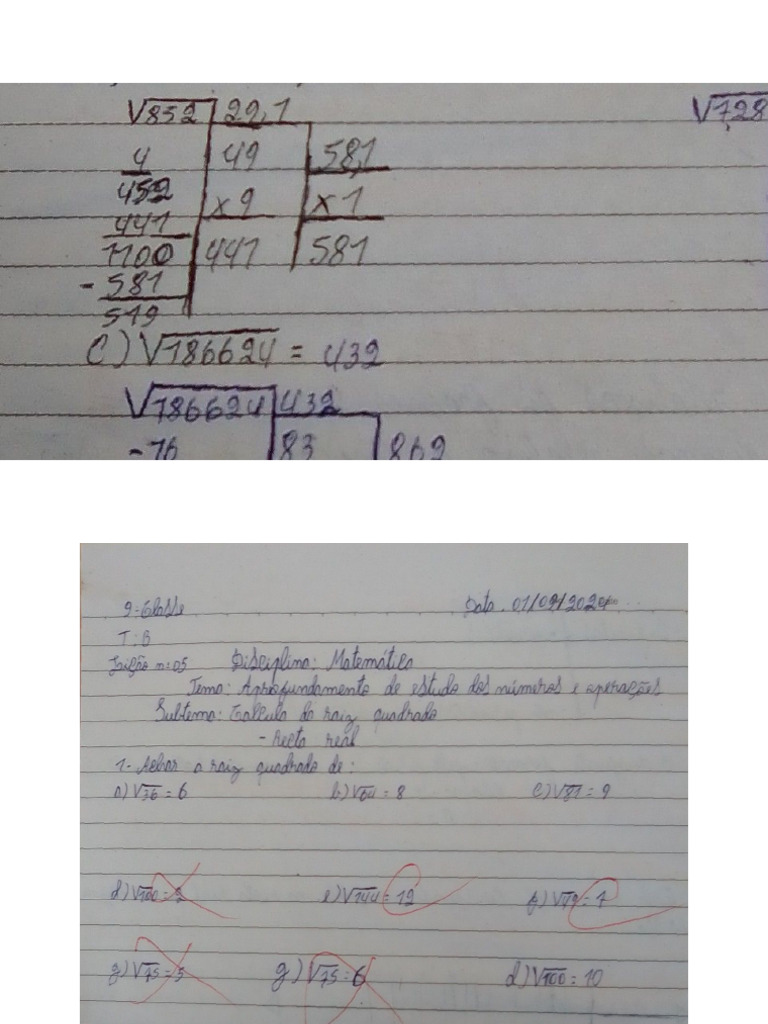 √852 29,1 √728
4 49 58,1
452 x 9 x 1
441
1100 441 581
- 581
519
C) √186624 = 432
√186624 432
-16 83 862
9ª Classe Data 01/09/2020
T: B
Lição nº: 05 Disciplina: Matemática
Tema: Aprofundamento de estudo dos números e operações
Subtema: Calculo da raiz quadrada
- Recta real
1- Achar a raiz quadrada de:
a) √36 = 6 b) √64 = 8 c) √81 = 9
d) √100 = e) √144 = 12 f) √49 = 7
g) √75 = 5 g) √75 = 6 d) √100 = 10